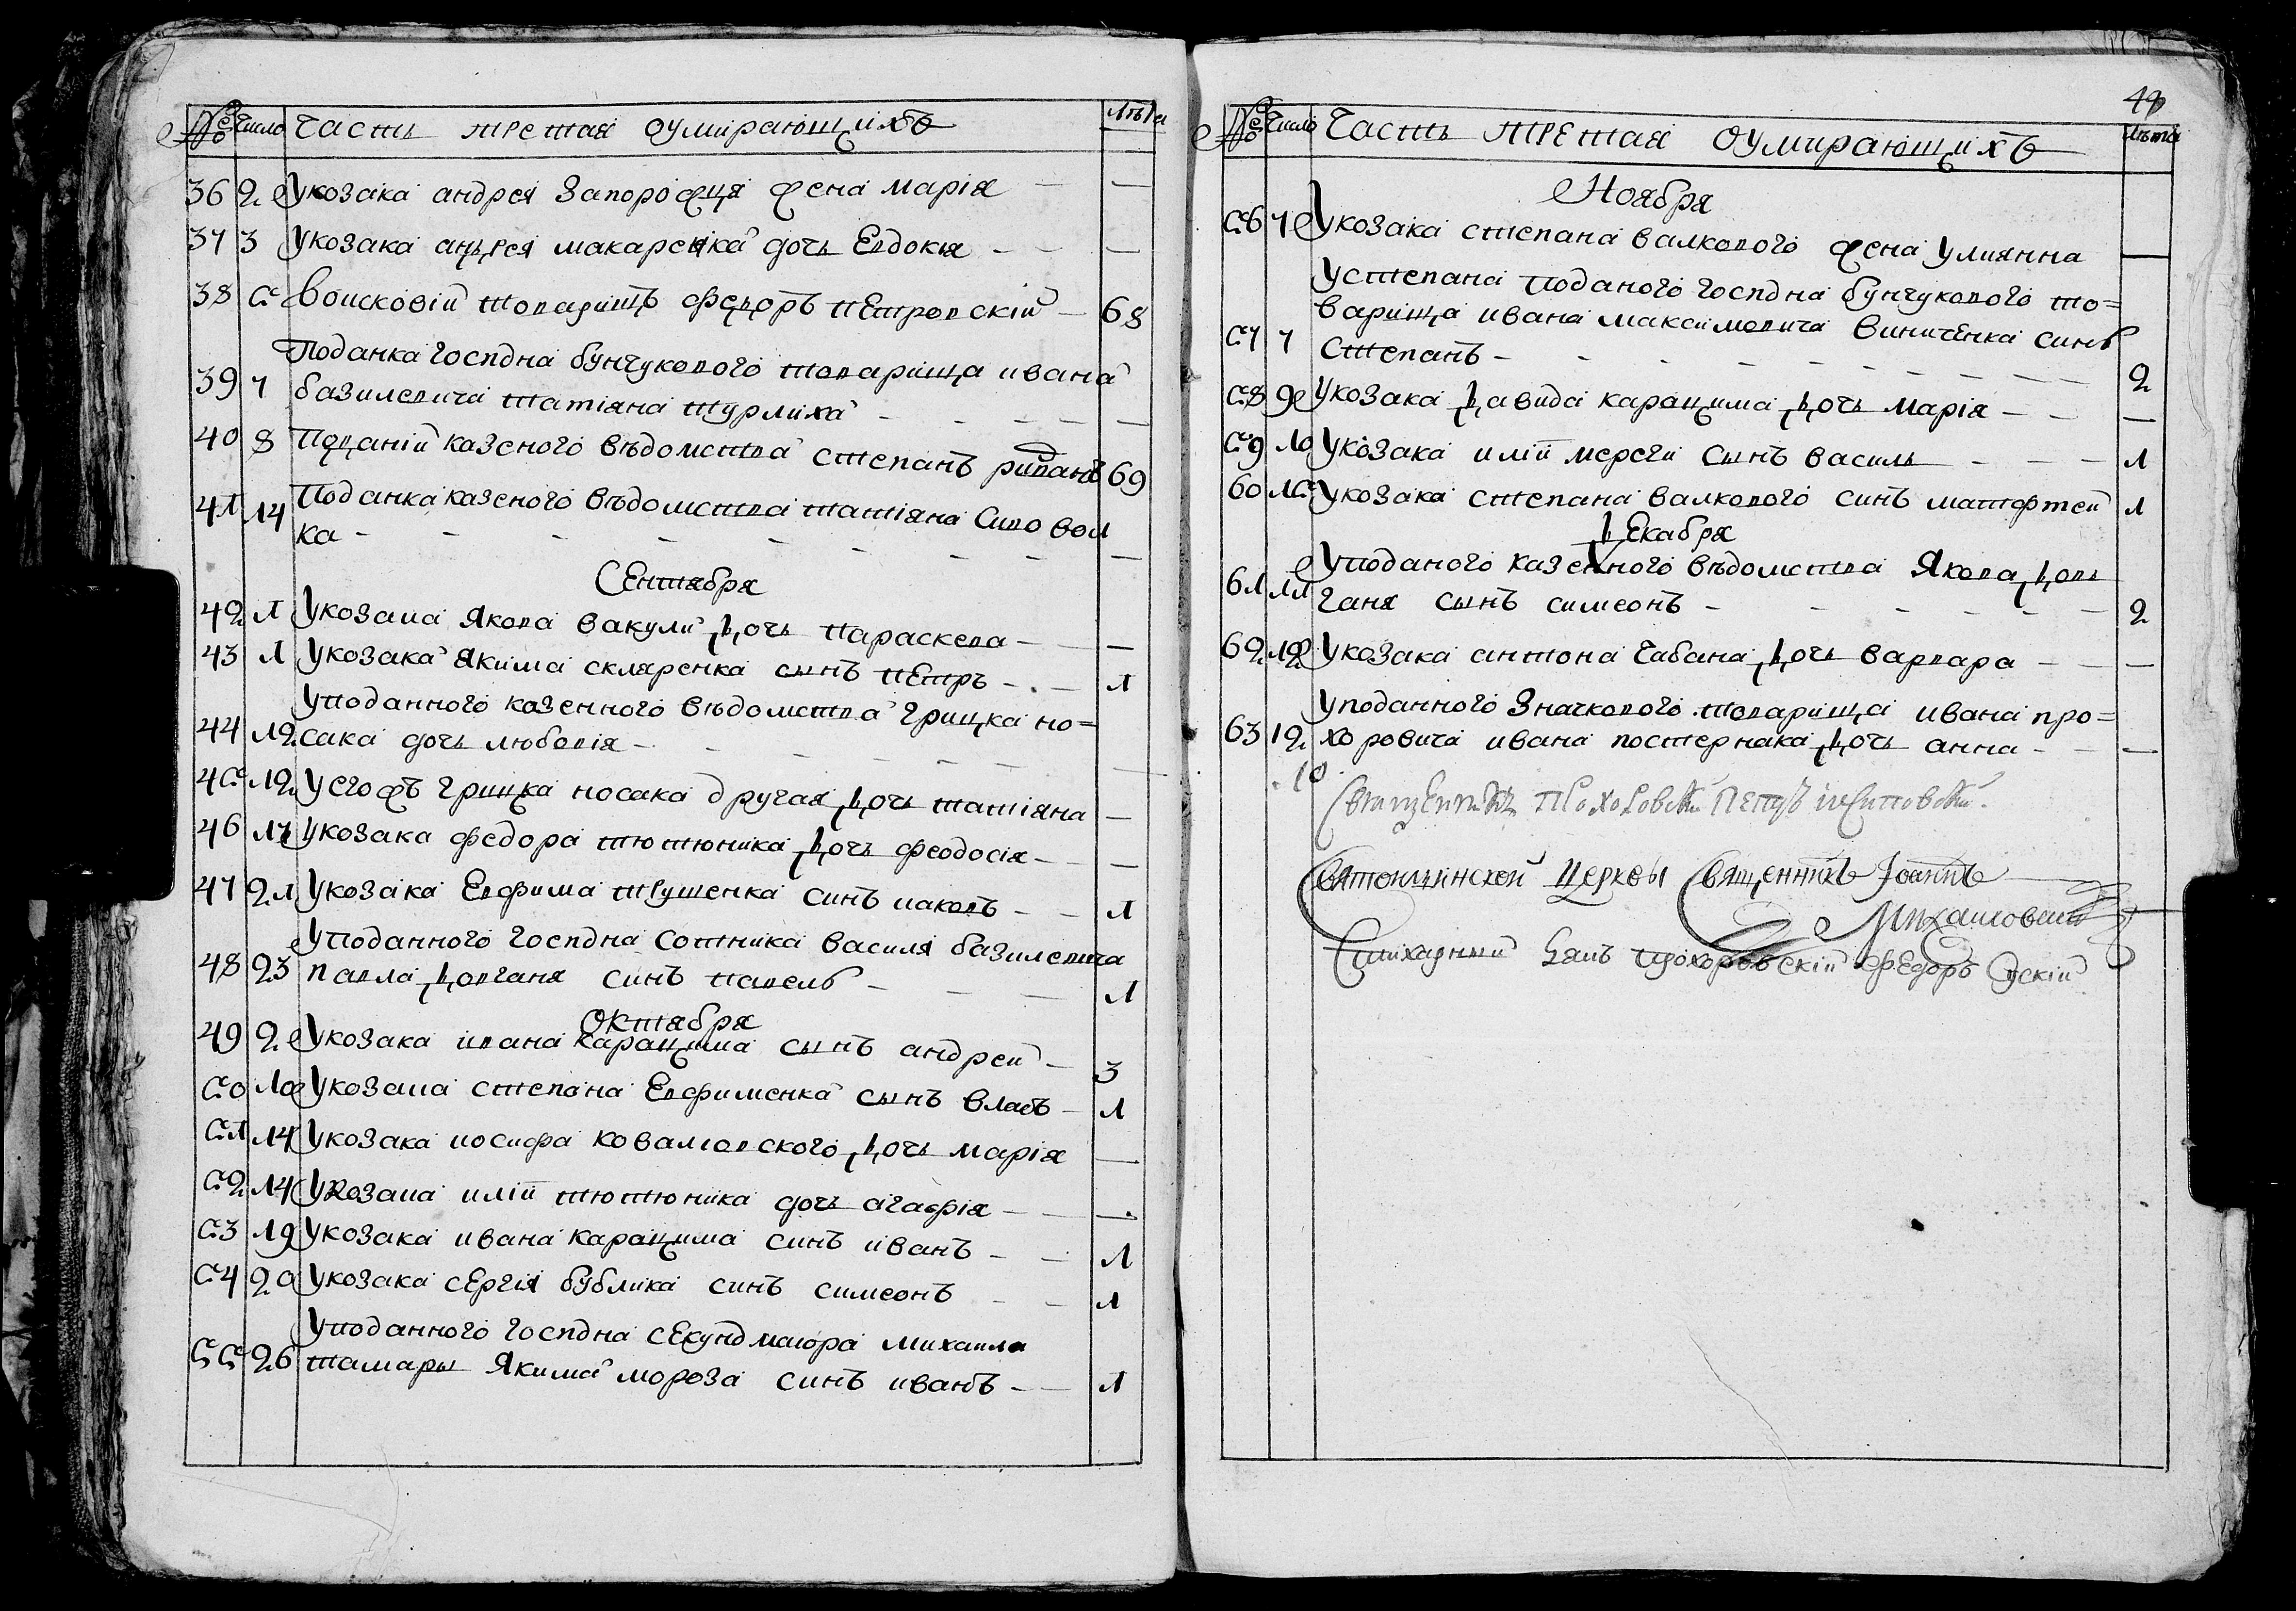 № число Часть третая оумирающихъ лѣта
36 2 У козака андрея Запорожця жена марія —
37 3 У козака андрея макаренка дочь Евдокія —
38 5 Войсковій товарищъ Федоръ Петровскій — 68
Поданка госпдна бунчукового товарища ивана
39 7 базилевича татіяна турлиха —
40 8 Поданій казеного вѣдомства степанъ 69
41 14 Поданка казеного вѣдомства татіяна Сиво
ка —
Сентября
42 1 У козака Якова вакули дочь Параскева —
43 1 У козака Якима скляренка сынъ Петръ — 1
У подданного казенного вѣдомства грицка но=
44 12 сака дочь любовія —
45 12 У егожъ грицка носака другая дочь татіяна —
46 У козака федора тютюника дочь феодосія —
47 21 У козака Евфима трушенка синъ иаковъ — 1
У подданного госпдна сотника василя базилевича
48 23 павла довганя синъ павелъ — 1
Октября
49 2 У козака ивана карацима сынъ андрей — 3
50 10 У козака степана Евфименка сынъ власъ — 1
51 14 У козака иосифа ковалювского дочь марія —
52 14 У козака иліи тютюника дочь агафія —
53 19 У козака ивана карацима синъ иванъ — 1
54 20 У козака сергія бублика синъ симеонъ — 1
У подданного госпдна секунд маіора михаила
55 26 тамары Якима мороза синъ иванъ — 1
49
№ число Часть третая оумирающихъ лѣта
Ноября
56 7 У козака степана валкового жена Улиянна —
У степана поданого госпдна бунчукового то=
варища ивана максимовича виниченка синъ
57 7 Степанъ — 2
58 9 У козака давида карацима дочь марія —
59 10 У козака иліи мереги сынъ василь — 1
60 15 У козака степана валкового синъ матфтей 1
Декабря
У поданого казенного вѣдомства Якова дов
61 11 ганя сынъ симеонъ — 2
62 12 У козака антона чабана дочь варвара —
У поданного значкового товарища ивана про=
63 12 хоровича ивана постернака дочь анна —
10
Священникъ Прохоровскій Петръ
Святоилинской церкви Священникъ Іоаннъ
Михаиловскій
Стихарный дякъ прохоровскій федоръ